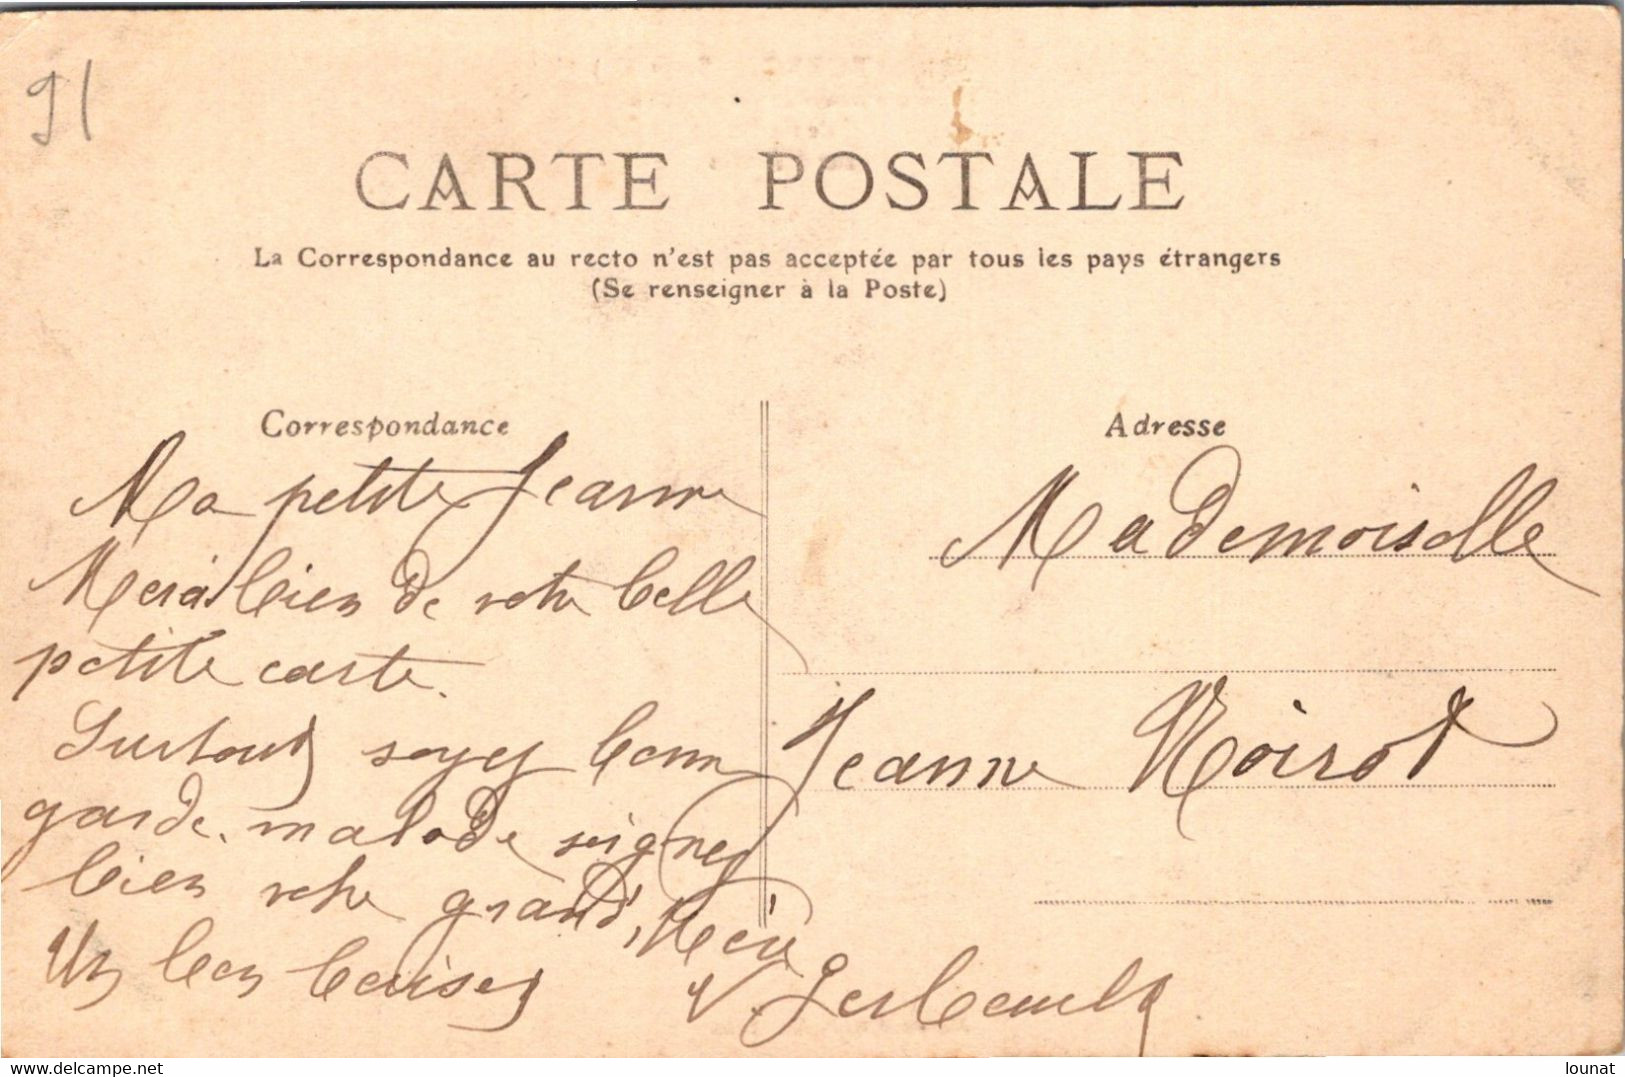 91
CARTE POSTALE
La Correspondance au recto n'est pas acceptée par tous les pays étrangers
(Se renseigner à la Poste)
Correspondance
Ma petite Jeanne
Merci bien de votre belle
petite carte.
Surtout soyez bonne
garde. malade soignez
bien votre grand, Mère
Un bon baiser
V. Gerbault
Adresse
Mademoiselle
Jeanne Noirot
www.delcampe.net
lounat